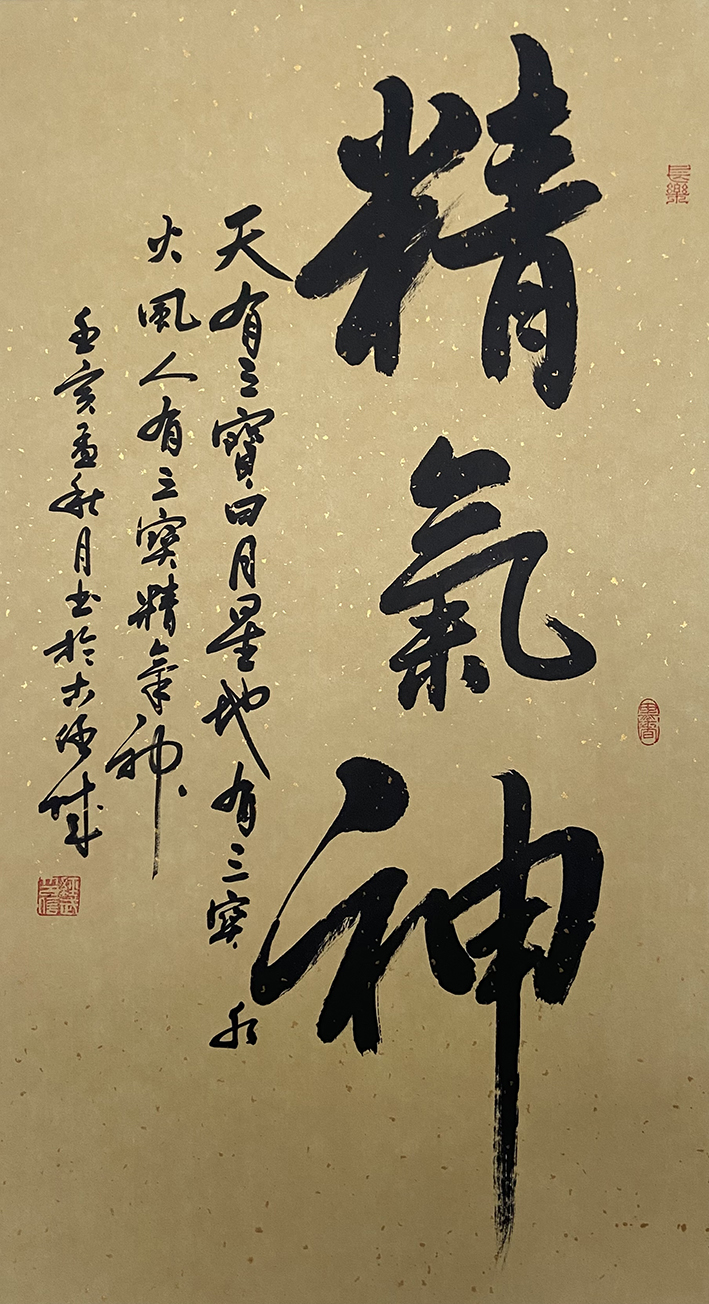 長樂
精氣神
天有三寶日月星地有三寶水
火風人有三寶精氣神
壬寅孟秋月书於城